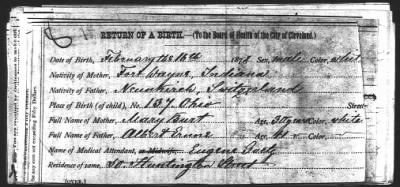 RETURN OF A BIRTH.—(To the Board of Health of the City of Cleveland.)
Date of Birth, February the 16th 1878 Sex, male Color, white
Nativity of Mother, Fort Wayne, Indiana
Nativity of Father, Neunkirch, Switzerland
Place of Birth (of child), No. 157 Ohio Street
Full Name of Mother, Mary Burt Age, 30 years Color, white
Full Name of Father, Albert Age, Color,
Name of Medical Attendant, or Midwife, Eugene
Residence of same, 30 Huntington Street
(OVER.)